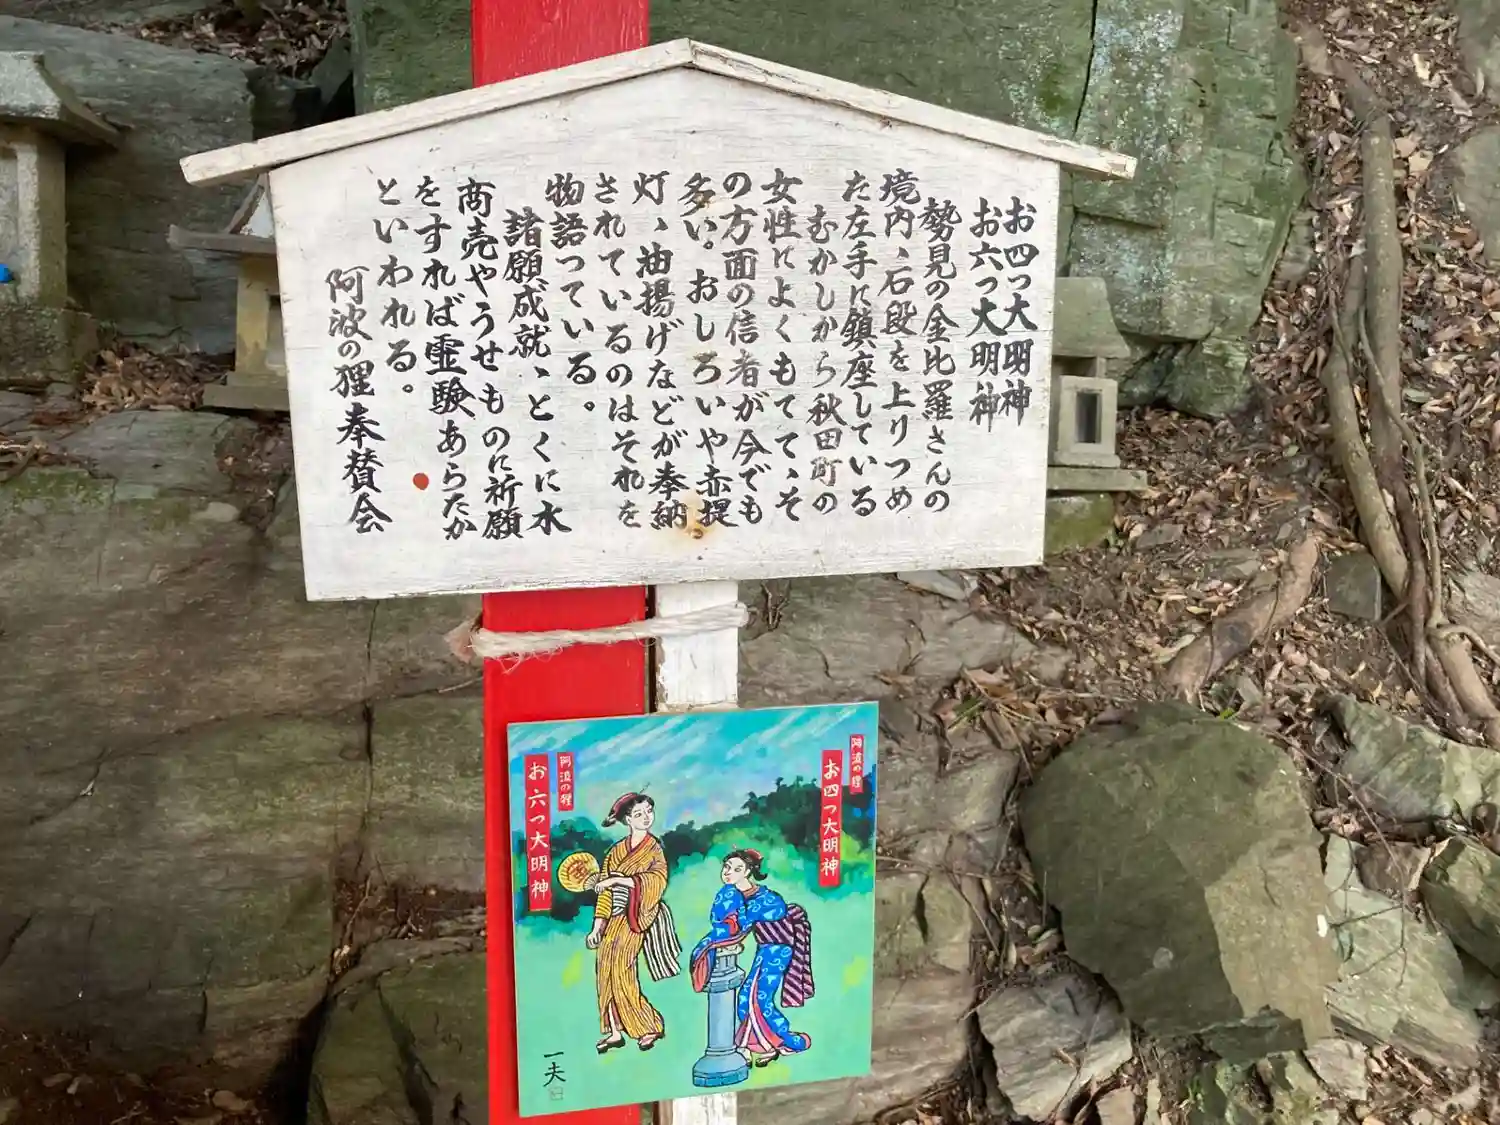 お四つ大明神
お六つ大明神
勢見の金比羅さんの
境内、石段を上りつめ
た左手に鎮座している
むかしから秋田町の
女性によくもてて、そ
の方面の信者が今でも
多い。おしろいや赤提
灯、油揚げなどが奉納
されているのはそれを
物語っている。
諸願成就、とくに水
商売やうせものに祈願
をすれば霊験あらたか
といわれる。
阿波の狸奉賛会
阿波の狸
お四つ大明神
阿波の狸
お六つ大明神
一夫